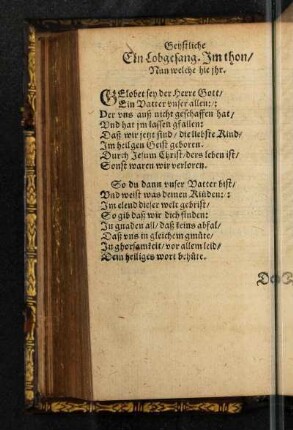 Geystliche
Ein Lobgesang. Im thon/
Nun welche hie jhr.
GElobet sey der Herre Gott/
Ein Vatter vnser allen: :
Der vns auß nicht geschaffen hat/
Vnd hat jm lassen gfallen:
Daß wir jetzt sind/ die liebste Kind/
Im heilgen Geist geboren.
Durch Jesum Christ/ ders leben ist/
Sonst waren wir verloren.
So du dann vnser Vatter bist/
Vnd weist was deinen Kinden: :
Im elend dieser welt gebrist/
So gib daß wir dich finden:
In gnaden all/ daß keins abfal/
Daß vns in gleichem gmüte/
In ghorsamkeit/ vor allem leid/
Dein heiliges wort behüte.